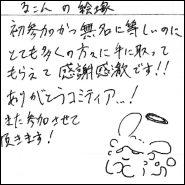 るこんの絵塚
初参加かつ無名に等しいのに
とても多くの方々に手に取って
もらえて感謝感激です!!
ありがとうコミティア…!
また参加させて
頂きます!